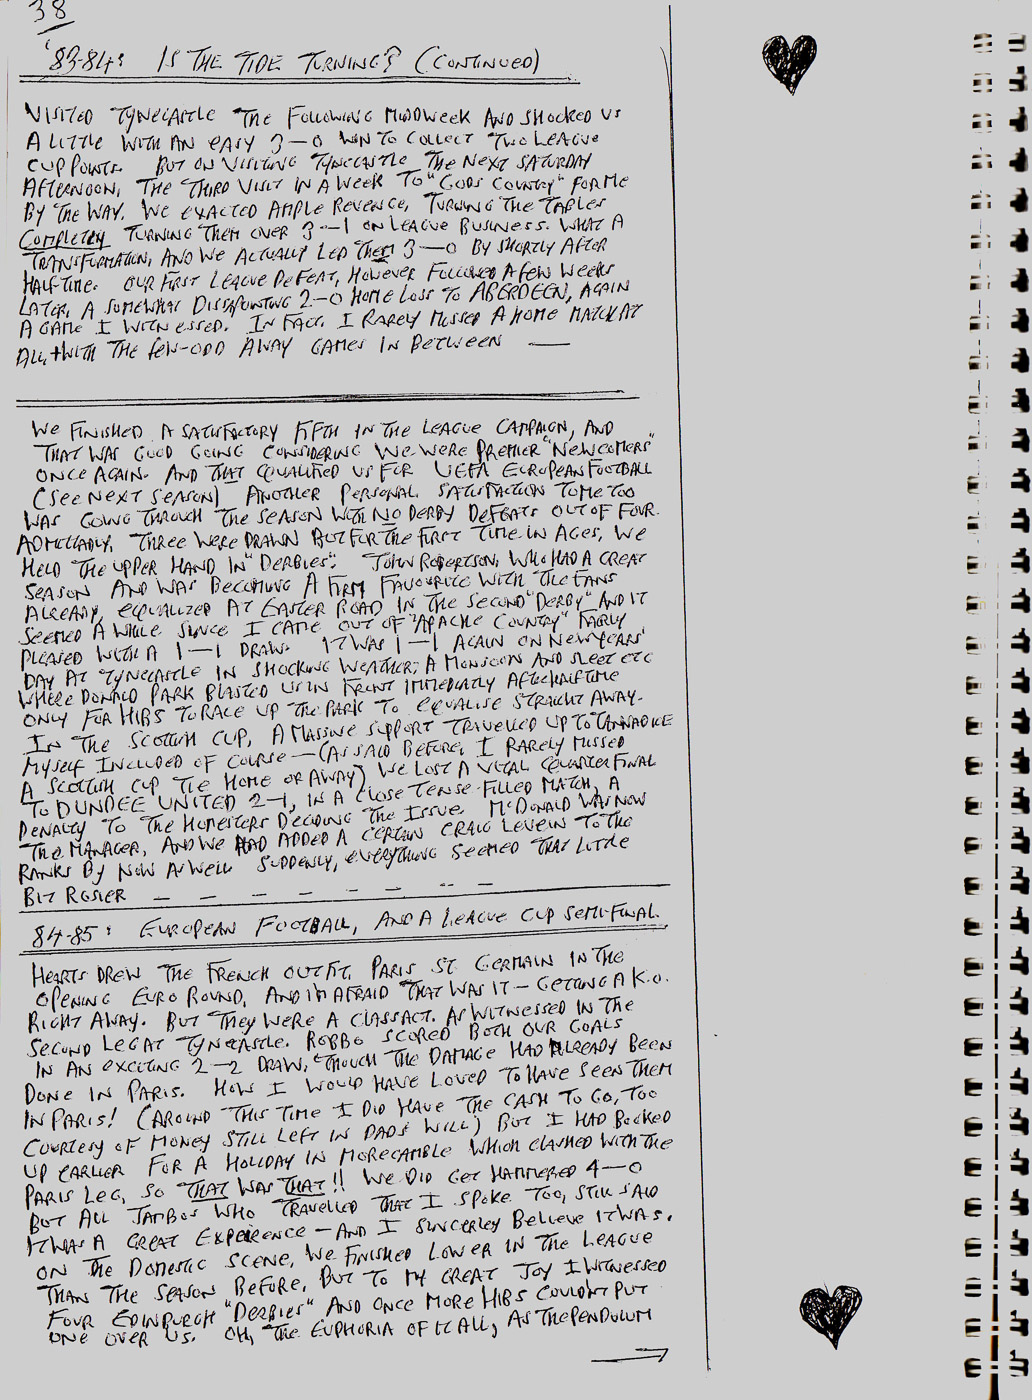 38
'83-84: IS THE TIDE TURNING? (CONTINUED)
VISITED TYNECASTLE THE FOLLOWING MIDWEEK AND SHOCKED US
A LITTLE WITH AN EASY 3-0 WIN TO COLLECT TWO LEAGUE
CUP POINTS. BUT ON VISITING TYNECASTLE THE NEXT SATURDAY
AFTERNOON, THE THIRD VISIT IN A WEEK TO "GODS COUNTRY" FOR ME
BY THE WAY. WE EXACTED AMPLE REVENGE, TURNING THE TABLES
COMPLETELY TURNING THEM OVER 3-1 ON LEAGUE BUSINESS. WHAT A
TRANSFORMATION, AND WE ACTUALLY LED THEM 3-0 BY SHORTLY AFTER
HALF-TIME. OUR FIRST LEAGUE DEFEAT, HOWEVER FOLLOWED A FEW WEEKS
LATER, A SOMEWHAT DISSAPOINTING 2-0 HOME LOSS TO ABERDEEN, AGAIN
A GAME I WITNESSED. IN FACT, I RARELY MISSED A HOME MATCH AT
ALL, + WITH THE FEW-ODD AWAY GAMES IN BETWEEN —
WE FINISHED A SATISFACTORY FIFTH IN THE LEAGUE CAMPAIGN, AND
THAT WAS GOOD GOING CONSIDERING WE WERE PREMIER "NEWCOMERS"
ONCE AGAIN. AND THAT QUALIFIED US FOR UEFA EUROPEAN FOOTBALL
(SEE NEXT SEASON) ANOTHER PERSONAL SATISFACTION TO ME TOO
WAS GOING THROUGH THE SEASON WITH NO DERBY DEFEATS OUT OF FOUR.
ADMITTADLY, THREE WERE DRAWN BUT FOR THE FIRST TIME IN AGES, WE
HELD THE UPPER HAND IN "DERBIES". JOHN ROBERTSON, WHO HAD A GREAT
SEASON AND WAS BECOMING A FIRM FAVOURITE WITH THE FANS
ALREADY, EQUALIZED AT EASTER ROAD IN THE SECOND "DERBY" AND IT
SEEMED A WHILE SINCE I CAME OUT OF "APACHE COUNTRY" FAIRLY
PLEASED WITH A 1-1 DRAW. IT WAS 1-1 AGAIN ON NEW YEARS'
DAY AT TYNECASTLE IN SHOCKING WEATHER; A MONSOON AND SLEET ETC
WHERE DONALD PARK BLASTED US IN FRONT IMMEDIATLY AFTER HALF TIME
ONLY FOR HIBS TO RACE UP THE PARK TO EQUALISE STRAIGHT AWAY.
IN THE SCOTTISH CUP, A MASSIVE SUPPORT TRAVELLED UP TO TANNADICE
MYSELF INCLUDED OF COURSE — (AS SAID BEFORE, I RARELY MISSED
A SCOTTISH CUP TIE HOME OR AWAY) WE LOST A VITAL QUARTER FINAL
TO DUNDEE UNITED 2-1, IN A CLOSE TENSE-FILLED MATCH, A
PENALTY TO THE HOMESTERS DECIDING THE ISSUE. McDONALD WAS NOW
THE MANAGER, AND WE HAD ADDED A CERTAIN CRAIG LEVEIN TO THE
RANKS BY NOW AS WELL. SUDDENLY, EVERYTHING SEEMED THAT LITTLE
BIT ROSIER — — — — — — —
84-85: EUROPEAN FOOTBALL, AND A LEAGUE CUP SEMI-FINAL.
HEARTS DREW THE FRENCH OUTFIT, PARIS ST. GERMAIN IN THE
OPENING EURO ROUND, AND I'M AFRAID THAT WAS IT — GETTING A K.O.
RIGHT AWAY. BUT THEY WERE A CLASS ACT. AS WITNESSED IN THE
SECOND LEG AT TYNECASTLE. ROBBO SCORED BOTH OUR GOALS
IN AN EXCITING 2-2 DRAW, THOUGH THE DAMAGE HAD ALREADY BEEN
DONE IN PARIS. HOW I WOULD HAVE LOVED TO HAVE SEEN THEM
IN PARIS! (AROUND THIS TIME I DID HAVE THE CASH TO GO, TOO
COURTESY OF MONEY STILL LEFT IN DADS' WILL) BUT I HAD BOOKED
UP EARLIER FOR A HOLIDAY IN MORECAMBLE WHICH CLASHED WITH THE
PARIS LEG, SO THAT WAS THAT!! WE DID GET HAMMERED 4-0
BUT ALL JAMBOS WHO TRAVELLED THAT I SPOKE TOO, STILL SAID
IT WAS A GREAT EXPERIENCE — AND I SINCERLEY BELIEVE IT WAS.
ON THE DOMESTIC SCENE, WE FINISHED LOWER IN THE LEAGUE
THAN THE SEASON BEFORE, BUT TO MY GREAT JOY I WITNESSED
FOUR EDINBURGH "DERBIES" AND ONCE MORE HIBS COULDN'T PUT
ONE OVER US. OH, THE EUPHORIA OF IT ALL, AS THE PENDULUM